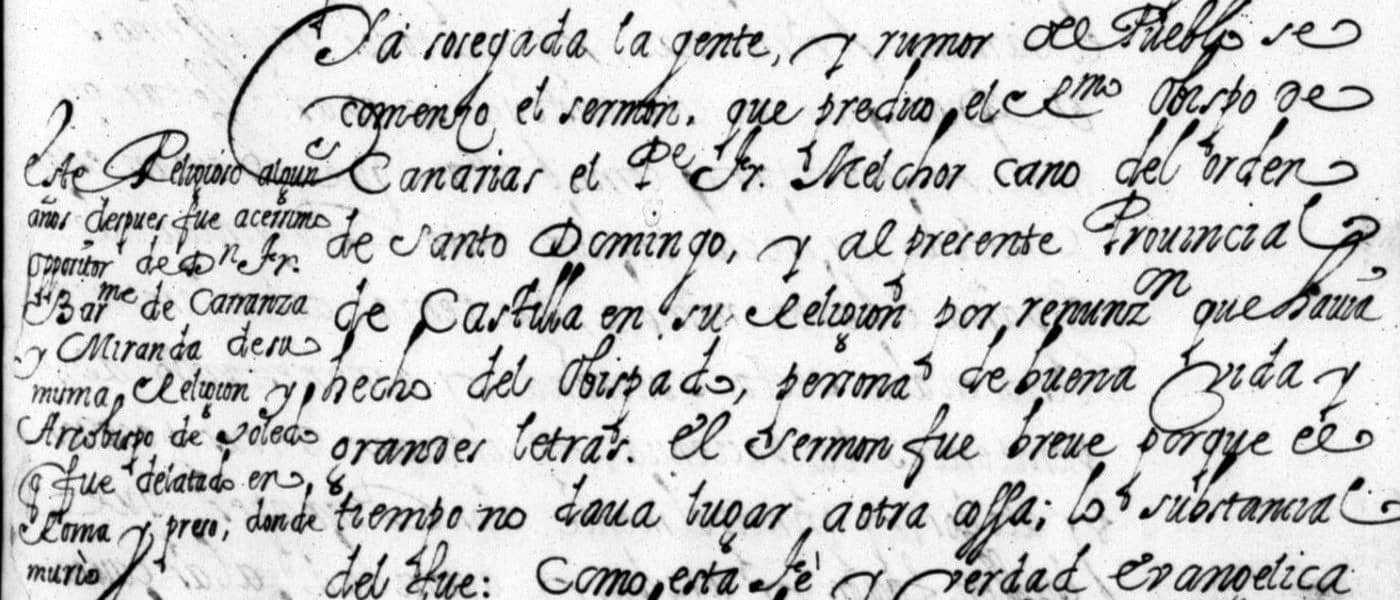 Ya sosegada la gente, y rumor del Pueblo se
comenzo el sermon, que predico el Exmo Obispo de
Canarias el Pe Fr. Melchor cano del orden
de Santo Domingo, y al presente Prouincial
de Castilla en su Religion por renunzon que hauia
hecho del Obispado, persona de buena vida y
grandes letras. El sermon fue breue porque el
tiempo no daua lugar a otra cossa; lo substancial
del fue: Como esta fè y verdad Evangelica
Este Religioso algun
años despues fue acerrimo
oppositor de Dn Fr.
Barme de Carranza
y Miranda de su
misma Religion y
Arzobispo de Toledo
q fue delatado en
Roma y preso, donde
murio